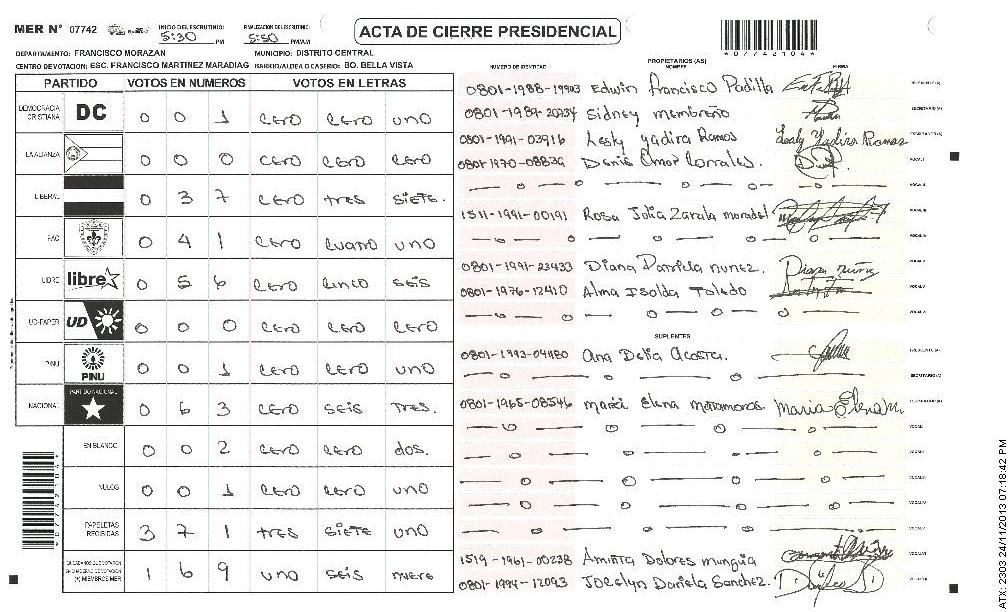 MER N° 07742 INICIO DEL ESCRUTINIO: 5:30 PM FINALIZACION DEL ESCRUTINIO: 5:50 PM/AM
ACTA DE CIERRE PRESIDENCIAL
*07742104*
DEPARTAMENTO: FRANCISCO MORAZAN MUNICIPIO: DISTRITO CENTRAL
CENTRO DE VOTACION: ESC. FRANCISCO MARTINEZ MARADIAG BARRIO/ALDEA O CASERIO: BO. BELLA VISTA
PARTIDO VOTOS EN NUMEROS VOTOS EN LETRAS
DEMOCRACIA CRISTIANA DC 0 0 1 cero cero uno
LA ALIANZA 0 0 0 cero cero cero
LIBERAL 0 3 7 cero tres siete.
PAC 0 4 1 cero cuatro uno
LIBRE libre 0 5 6 cero cinco seis
UD-FAPER UD 0 0 0 cero cero cero
PINU PINU 0 0 1 cero cero uno
NACIONAL PARTIDO NACIONAL 0 6 3 cero seis tres.
EN BLANCO 0 0 2 cero cero dos.
NULOS 0 0 1 cero cero uno
PAPELETAS RECIBIDAS 3 7 1 tres siete uno
CIUDADANOS QUE VOTARON EN CUADERNO DE VOTACION (+) MIEMBROS MER 1 6 9 uno seis nueve
NUMERO DE IDENTIDAD PROPIETARIOS (AS) NOMBRE FIRMA
0801-1988-19903 Edwin Francisco Padilla
0801-1989-20234 Sidney membreño
0801-1991-03916 Lesly Yadira Ramos Lesly Yadira Ramos
0801-1970-08839 Denis Omar Corrales.
1511-1991-00191 Rosa Julia Zarala
0801-1991-23433 Diana Daniela nunez. Diana núñez
0801-1976-12410 Alma Isolda Toledo
SUPLENTES
0801-1993-04480 Ana Delia Acosta.
0801-1965-08546 maria Elena matamoros. Maria Elena M.
1519-1961-00238 Aminta Dolores mungia
0801-1994-12093 Jocelyn Daniela Sanchez.
*07742104*
ATX: 2303 24/11/2013 07:18:42 PM